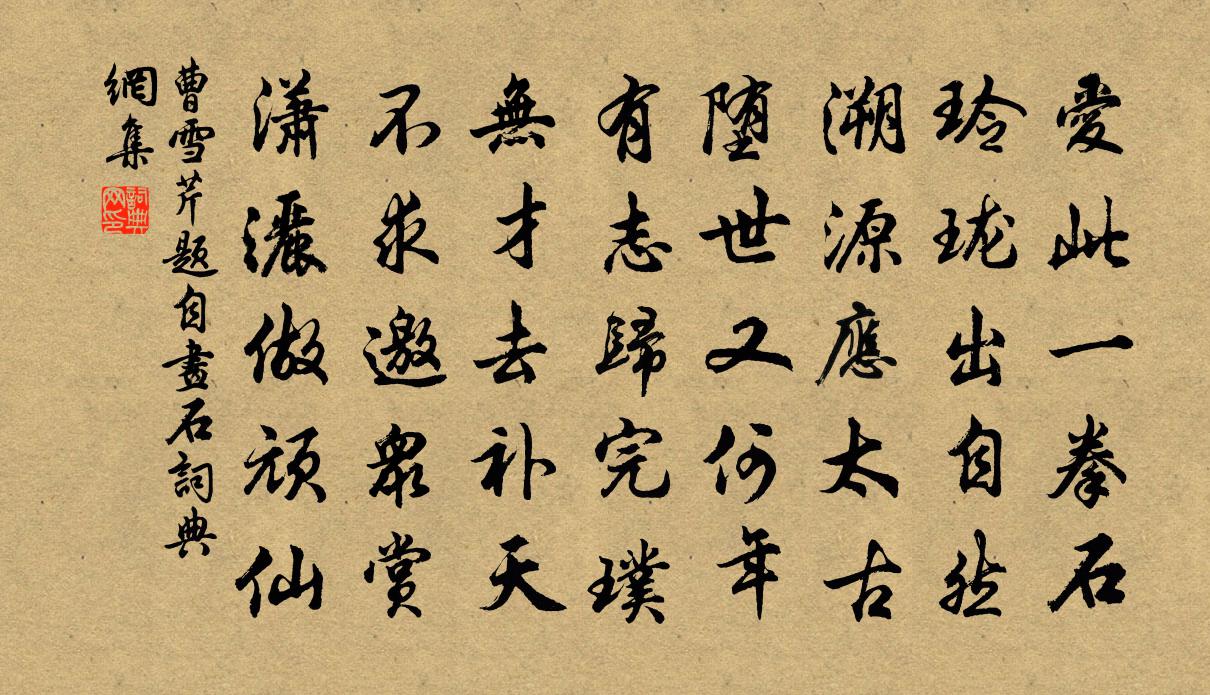 愛此一拳石
玲珑出自然
溯源應太古
堕世又何年
有志歸完璞
無才去补天
不求邀眾賞
瀟灑做顽仙
曹雪芹题自畫石詞典
網集
詞典
网印